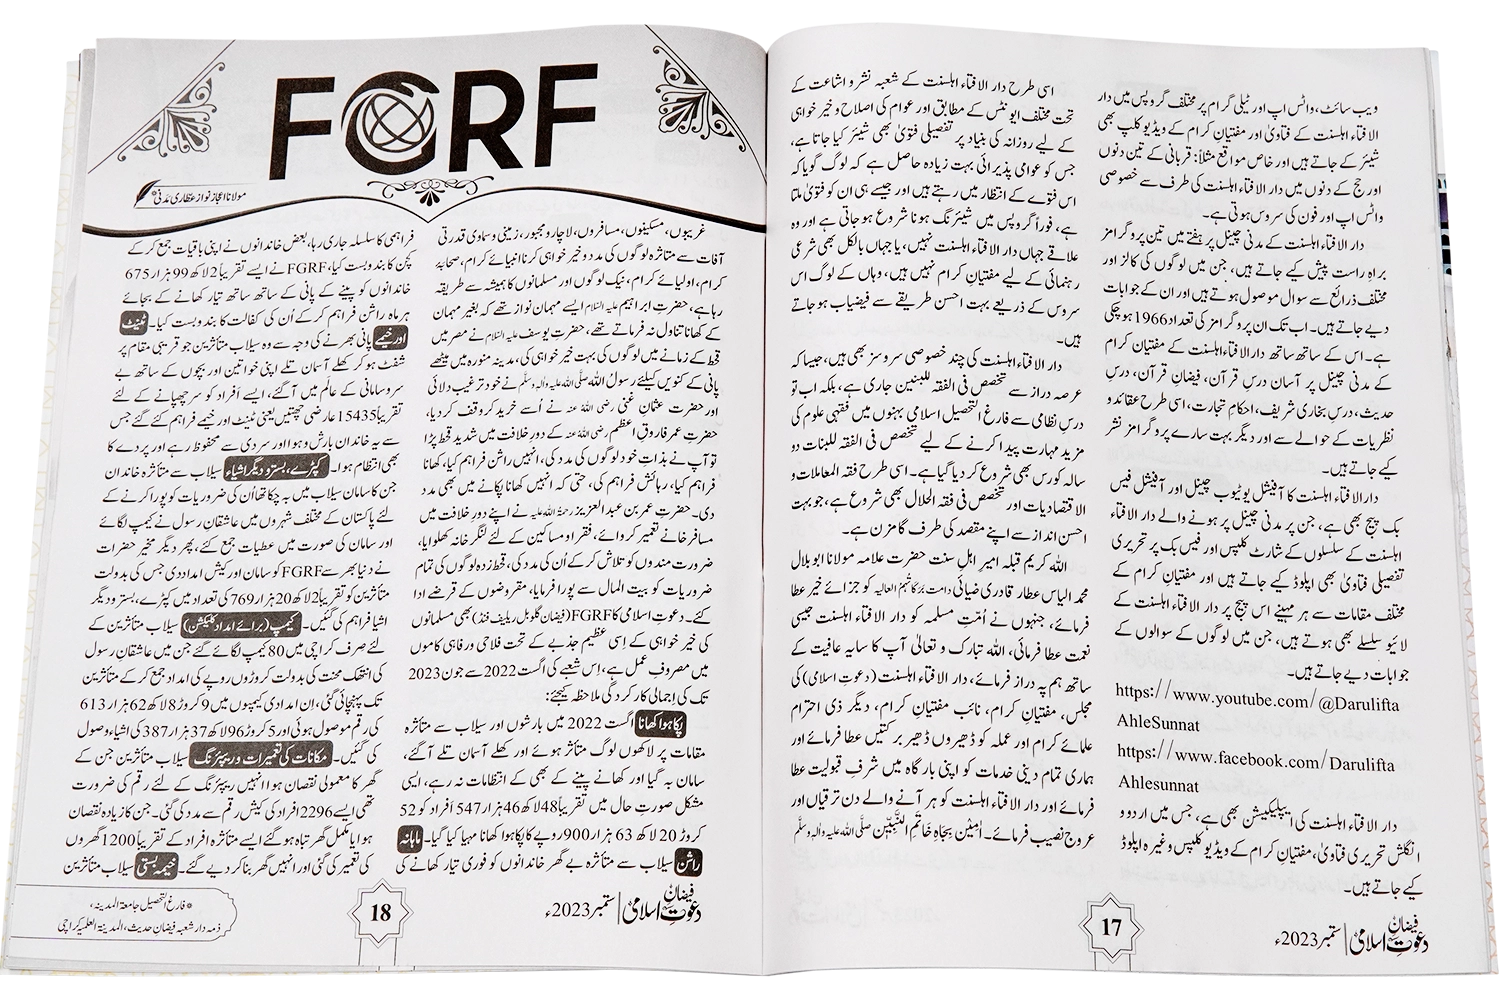 ویب سائٹ، واٹس اپ اور ٹیلی گرام پر مختلف گروپس میں دار
الافتاء اہلسنت کے فتاویٰ اور مفتیانِ کرام کے ویڈیو کلپ بھی
شیئر کے جاتے ہیں اور خاص مواقع مثلاً: قربانی کے تین دنوں
اور حج کے دنوں میں دار الافتاء اہلسنت کی طرف سے خصوصی
واٹس اپ اور فون کی سروس ہوتی ہے۔
دار الافتاء اہلسنت کے مدنی چینل پر ہفتے میں تین پروگرامز
براہِ راست پیش کیے جاتے ہیں، جن میں لوگوں کی کالز اور
مختلف ذرائع سے سوال موصول ہوتے ہیں اور ان کے جوابات
دیے جاتے ہیں۔ اب تک ان پروگرامز کی تعداد 1966 ہوچکی
ہے۔ اس کے ساتھ ساتھ دار الافتاء اہلسنت کے مفتیان کرام
کے مدنی چینل پر آسان درسِ قرآن، فیضانِ قرآن، درسِ
حدیث، درسِ بخاری شریف، احکامِ تجارت، اسی طرح عقائد و
نظریات کے حوالے سے اور دیگر بہت سارے پروگرامز نشر
کیے جاتے ہیں۔
دار الافتاء اہلسنت کا آفیشل یوٹیوب چینل اور آفیشل فیس
بک پیج بھی ہے، جن پر مدنی چینل پر ہونے والے دار الافتاء
اہلسنت کے سلسلوں کے شارٹ کلپس اور فیس بک پر تحریری
تفصیلی فتاویٰ بھی اپلوڈ کیے جاتے ہیں اور مفتیانِ کرام کے
مختلف مقامات سے ہر مہینے اس پیج پر دار الافتاء اہلسنت کے
لائیو سلسلے بھی ہوتے ہیں، جن میں لوگوں کے سوالوں کے
جوابات دیے جاتے ہیں۔
https://www.youtube.com/@Darulifta
AhleSunnat
https://www.facebook.com/Darulifta
Ahlesunnat
دار الافتاء اہلسنت کی ایپلیکیشن بھی ہے، جس میں اردو و
انگلش تحریری فتاویٰ، مفتیان کرام کے ویڈیو کلپس وغیرہ اپلوڈ
کیے جاتے ہیں۔
اسی طرح دار الافتاء اہلسنت کے شعبہ نشر و اشاعت کے
تحت مختلف ایونٹس کے مطابق اور عوام کی اصلاح و خیر خواہی
کے لیے روزانہ کی بنیاد پر تفصیلی فتویٰ بھی شیئر کیا جاتا ہے،
جس کو عوامی پذیرائی بہت زیادہ حاصل ہے کہ لوگ گویا کہ
اس فتوے کے انتظار میں رہتے ہیں اور جیسے ہی ان کو فتویٰ ملتا
ہے، فوراً گروپس میں شیئرنگ ہونا شروع ہو جاتی ہے اور وہ
علاقے جہاں دار الافتاء اہلسنت نہیں، یا جہاں بالکل بھی شرعی
رہنمائی کے لیے مفتیانِ کرام نہیں ہیں، وہاں کے لوگ اس
سروس کے ذریعے بہت احسن طریقے سے فیضیاب ہو جاتے
ہیں۔
دار الافتاء اہلسنت کی چند خصوصی سروسز بھی ہیں، جیسا کہ
عرصہ دراز سے تخصص فی الفقہ للبنین جاری ہے، بلکہ اب تو
درس نظامی سے فارغ التحصیل اسلامی بہنوں میں فقہی علوم کی
مزید مہارت پیدا کرنے کے لیے تخصص فی الفقہ للبنات دو
سالہ کورس بھی شروع کر دیا گیا ہے۔ اسی طرح فقہ المعاملات و
الاقتصادیات اور تخصص فی فقہ الحلال بھی شروع ہے، جو بہت
احسن انداز سے اپنے مقصد کی طرف گامزن ہے۔
اللہ کریم قبلہ امیرِ اہلِ سنت حضرت علامہ مولانا ابو بلال
محمد الیاس عطار قادری ضیائی دامت برکاتہم العالیہ کو جزائے خیر عطا
فرمائے، جنہوں نے اُمّتِ مسلمہ کو دار الافتاء اہلسنت جیسی
نعمت عطا فرمائی، اللہ تبارک و تعالیٰ آپ کا سایہ عافیت کے
ساتھ ہم پہ دراز فرمائے، دار الافتاء اہلسنت (دعوتِ اسلامی) کی
مجلس، مفتیانِ کرام، نائب مفتیانِ کرام، دیگر ذی احترام
علمائے کرام اور عملہ کو ڈھیروں ڈھیر برکتیں عطا فرمائے اور
ہماری تمام دینی خدمات کو اپنی بارگاہ میں شرفِ قبولیت عطا
فرمائے اور دار الافتاء اہلسنت کو ہر آنے والے دن ترقیاں اور
عروج نصیب فرمائے۔ اٰمِیْن بِجَاہِ خَاتَمِ النَّبِیّٖن صلَّی اللہ علیہ واٰلہٖ وسلَّم
فیضانِ دعوتِ اسلامی | ستمبر 2023ء
17
FGRF
مولانا اعجاز نواز عطاری مدنی*
غریبوں، مسکینوں، مسافروں، لاچار و مجبور، زمینی و سماوی قدرتی
آفات سے متاثرہ لوگوں کی مدد و خیر خواہی کرنا انبیائے کرام، صحابۂ
کرام، اولیائے کرام، نیک لوگوں اور مسلمانوں کا ہمیشہ سے طریقہ
رہا ہے، حضرتِ ابراہیم علیہ السّلام ایسے مہمان نواز تھے کہ بغیر مہمان
کے کھانا تناول نہ فرماتے تھے، حضرتِ یوسف علیہ السّلام نے مصر میں
قحط کے زمانے میں لوگوں کی بہت خیر خواہی کی، مدینہ منورہ میں میٹھے
پانی کے کنویں کیلئے رسولُ اللہ صلَّی اللہ علیہ واٰلہٖ وسلَّم نے خود ترغیب دلائی
اور حضرت عثمانِ غنی رضی اللہ عنہ نے اُسے خرید کر وقف کر دیا،
حضرتِ عمر فاروقِ اعظم رضی اللہ عنہ کے دورِ خلافت میں شدید قحط پڑا
تو آپ نے بذاتِ خود لوگوں کی مدد کی، انہیں راشن فراہم کیا، کھانا
فراہم کیا، رہائش فراہم کی، حتی کہ انہیں کھانا پکانے میں بھی مدد
دی۔ حضرتِ عمر بن عبد العزیز رحمۃُ اللہ علیہ نے اپنے دورِ خلافت میں
مسافر خانے تعمیر کروائے، فقرا و مساکین کے لئے لنگر خانہ کھلوایا،
ضرورت مندوں کو تلاش کر کے اُن کی مدد کی، قحط زدہ لوگوں کی تمام
ضروریات کو بیت المال سے پورا فرمایا، مقروضوں کے قرضے ادا
کئے۔ دعوتِ اسلامی کا FGRF (فیضان گلوبل ریلیف فنڈ) بھی مسلمانوں
کی خیر خواہی کے اِسی عظیم جذبے کے تحت فلاحی و رفاہی کاموں
میں مصروفِ عمل ہے، اِس شعبے کی اگست 2022 سے جون 2023
تک کی اِجمالی کارکردگی ملاحظہ کیجئے:
پکا ہوا کھانا اگست 2022 میں بارشوں اور سیلاب سے متاثرہ
مقامات پر لاکھوں لوگ متاثر ہوئے اور کھلے آسمان تلے آگئے،
سامان بہ گیا اور کھانے پینے کے بھی کے انتظامات نہ رہے، ایسی
مشکل صورتِ حال میں تقریباً 48 لاکھ 46 ہزار 547 افراد کو 52
کروڑ 20 لاکھ 63 ہزار 900 روپے کا پکا ہوا کھانا مہیا کیا گیا۔ ماہانہ
راشن سیلاب سے متاثرہ بے گھر خاندانوں کو فوری تیار کھانے کی
فراہمی کا سلسلہ جاری رہا، بعض خاندانوں نے اپنی باقیات جمع کر کے
کچن کا بندوبست کیا، FGRF نے ایسے تقریباً 2 لاکھ 99 ہزار 675
خاندانوں کو پینے کے پانی کے ساتھ ساتھ تیار کھانے کے بجائے
ہر ماہ راشن فراہم کر کے اُن کی کفالت کا بندوبست کیا۔ ٹینٹ
اور خیمے پانی بھرنے کی وجہ سے وہ سیلاب متاثرین جو قریبی مقام پر
شفٹ ہو کر کھلے آسمان تلے اپنی خواتین اور بچوں کے ساتھ بے
سروسامانی کے عالم میں آگئے، ایسے افراد کو سر چھپانے کے لئے
تقریباً 15435 عارضی چھتیں یعنی ٹینٹ اور خیمے فراہم کئے گئے جس
سے یہ خاندان بارش و ہوا اور سردی سے محفوظ رہے اور پردے کا
بھی انتظام ہوا۔ کپڑے، بستر و دیگر اشیاء سیلاب سے متاثرہ خاندان
جن کا سامان سیلاب میں بہ چکا تھا اُن کی ضروریات کو پورا کرنے کے
لئے پاکستان کے مختلف شہروں میں عاشقانِ رسول نے کیمپ لگائے
اور سامان کی صورت میں عطیات جمع کئے، پھر دیگر مخیر حضرات
نے دنیا بھر سے FGRF کو سامان اور کیش امداد دی جس کی بدولت
متاثرین کو تقریباً 2 لاکھ 20 ہزار 769 کی تعداد میں کپڑے، بستر و دیگر
اشیا فراہم کی گئیں۔ کیمپ (برائے امداد کلیکشن) سیلاب متاثرین کے
لئے صرف کراچی میں 80 کیمپ لگائے گئے جن میں عاشقانِ رسول
کی انتھک محنت کی بدولت کروڑوں روپے کی امداد جمع کر کے متاثرین
تک پہنچائی گئی، اِن امدادی کیمپوں میں 9 کروڑ 8 لاکھ 62 ہزار 613
کی رقم موصول ہوئی اور 5 کروڑ 96 لاکھ 37 ہزار 387 کی اشیاء وصول
کی گئیں۔ مکانات کی تعمیرات و ریپئرنگ سیلاب متاثرین جن کے
گھر کا معمولی نقصان ہوا انہیں ریپئرنگ کے لئے رقم کی ضرورت
تھی ایسے 2296 افراد کی کیش رقم سے مدد کی گئی۔ جن کا زیادہ نقصان
ہوا یا مکمل گھر تباہ ہو گئے ایسے متاثرہ افراد کے تقریباً 1200 گھروں
کی تعمیر کی گئی اور انہیں گھر بنا کر دیے گئے۔ خیمہ بستی سیلاب متاثرین
فیضانِ دعوتِ اسلامی | ستمبر 2023ء
18
* فارغ التحصیل جامعۃ المدینہ،
ذمہ دار شعبہ فیضان حدیث، المدینۃ العلمیہ کراچی